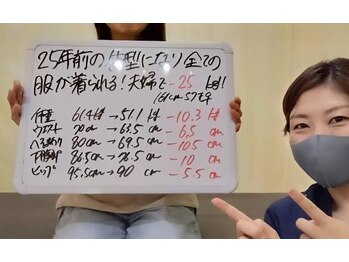 25年前の体型になり全ての
服が着られる！夫婦で-25kg!!
161cm 57才
体重 61.4kg→51.1kg -10.3kg
ウエスト 70cm→63.5cm -6.5cm
へそ周り 80cm→69.5cm -10.5cm
下腹 86.5cm→76.5cm -10cm
ヒップ 95.5cm→90cm -5.5cm